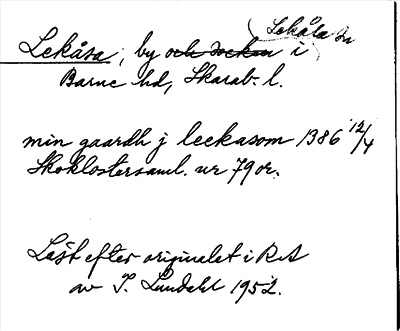 Lekåsa, by och socken i Lekåsa sn
Barne hd, Skarab. l.
min gaardh j leckasom 1386 12/4
Skoklostersaml. nr 79 or.
Läst efter originalet i RA
av I. Lundahl 1952.